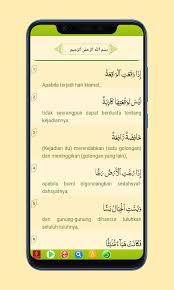 بسم الله الرحمن الرحيم
1
إِذَا وَقَعَتِ الْوَاقِعَةُ
Apabila terjadi hari kiamat,
2
لَيْسَ لِوَقْعَتِهَا كَاذِبَةٌ
tidak seorangpun dapat berdusta tentang
kejadiannya.
3
خَافِضَةٌ رَّافِعَةٌ
(Kejadian itu) merendahkan (satu golongan)
dan meninggikan (golongan yang lain),
4
إِذَا رُجَّتِ الْأَرْضُ رَجًّا
apabila bumi digoncangkan sedahsyat-
dahsyatnya,
5
وَبُسَّتِ الْجِبَالُ بَسًّا
dan gunung-gunung dihancur luluhkan
seluluh-luluhnya,
6
فَكَانَتْ هَبَاءً مُّنبَثًّا